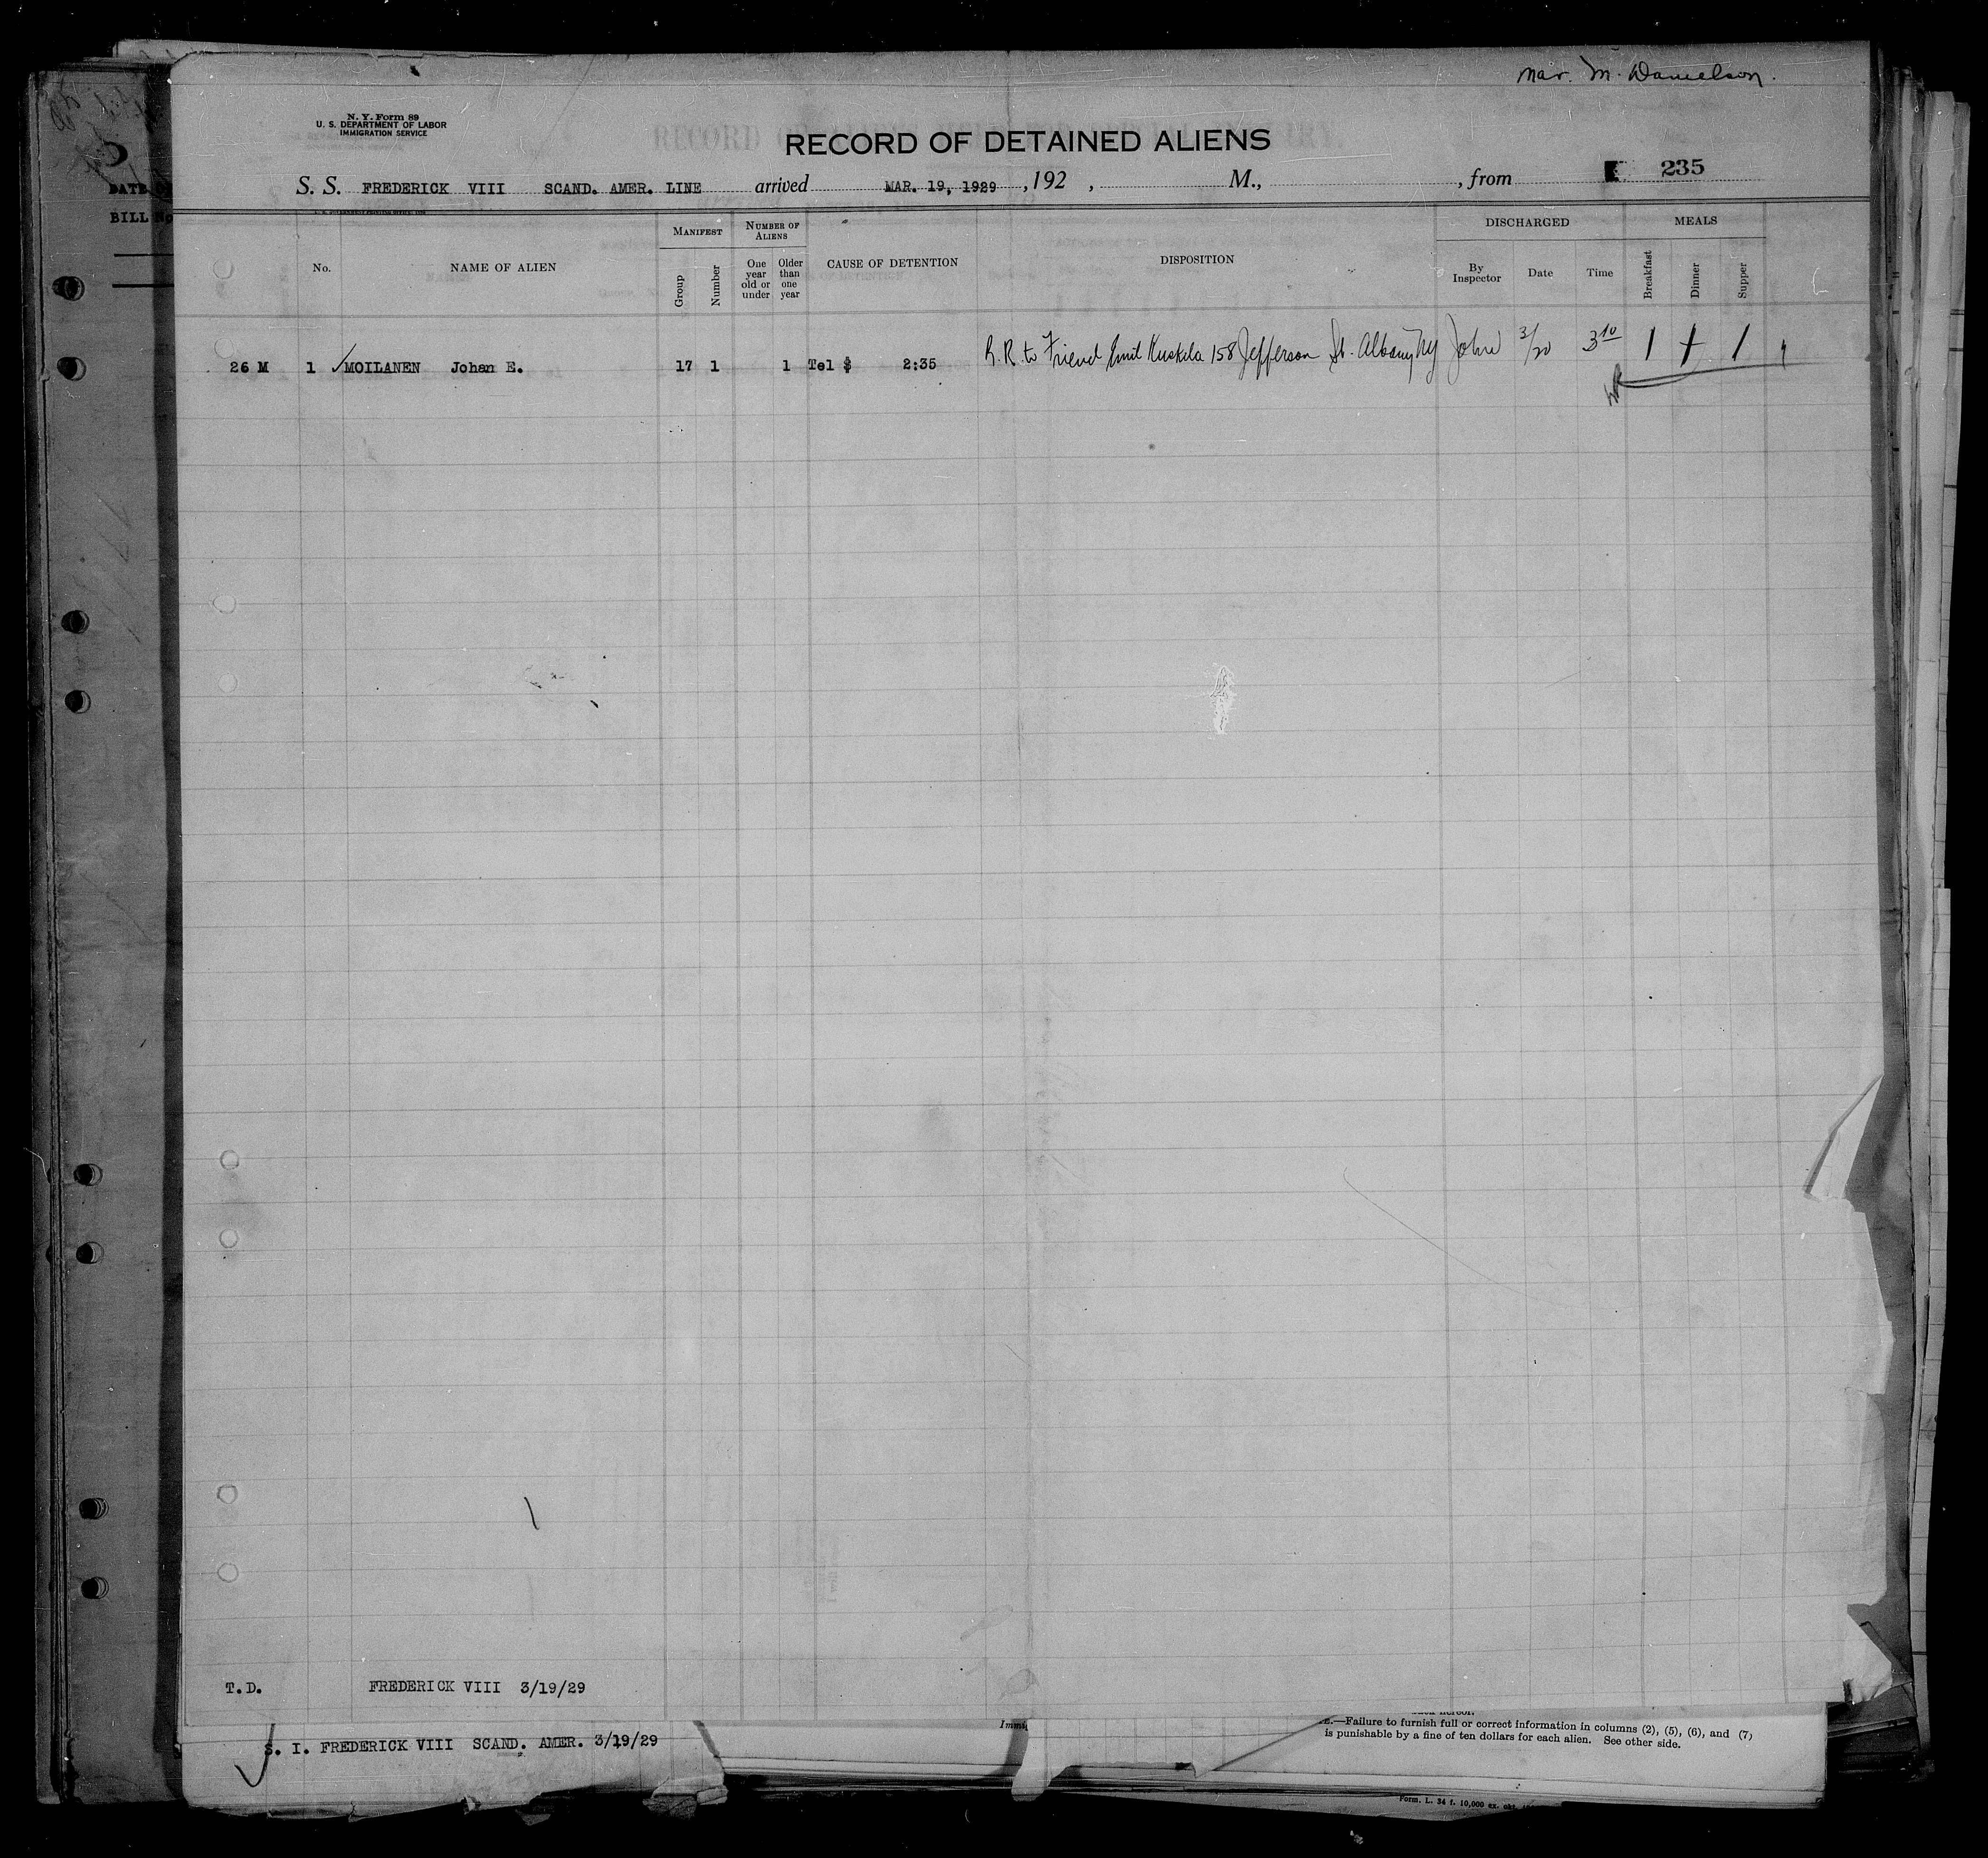 Mar. M. Danielson.
N. Y. Form 89
U. S. DEPARTMENT OF LABOR
IMMIGRATION SERVICE
RECORD OF DETAINED ALIENS
S. S. FREDERICK VIII SCAND. AMER. LINE arrived MAR. 19, 1929, 192 , M., , from 235
DATE
BILL No
No.
NAME OF ALIEN
MANIFEST
Group
Number
NUMBER OF ALIENS
One year old or under
Older than one year
CAUSE OF DETENTION
DISPOSITION
DISCHARGED
By Inspector
Date
Time
MEALS
Breakfast
Dinner
Supper
26 M 1 MOILANEN Johan E. 17 1 1 Tel $ 2:35 R.R. to Friend Emil Kuskila 158 Jefferson St. Albany NY John 3/20 3 10 1 1 1
T.D. FREDERICK VIII 3/19/29
S. I. FREDERICK VIII SCAND. AMER. 3/19/29
—Failure to furnish full or correct information in columns (2), (5), (6), and (7)
is punishable by a fine of ten dollars for each alien. See other side.
Form. L. 34 f. 10,000 ex.